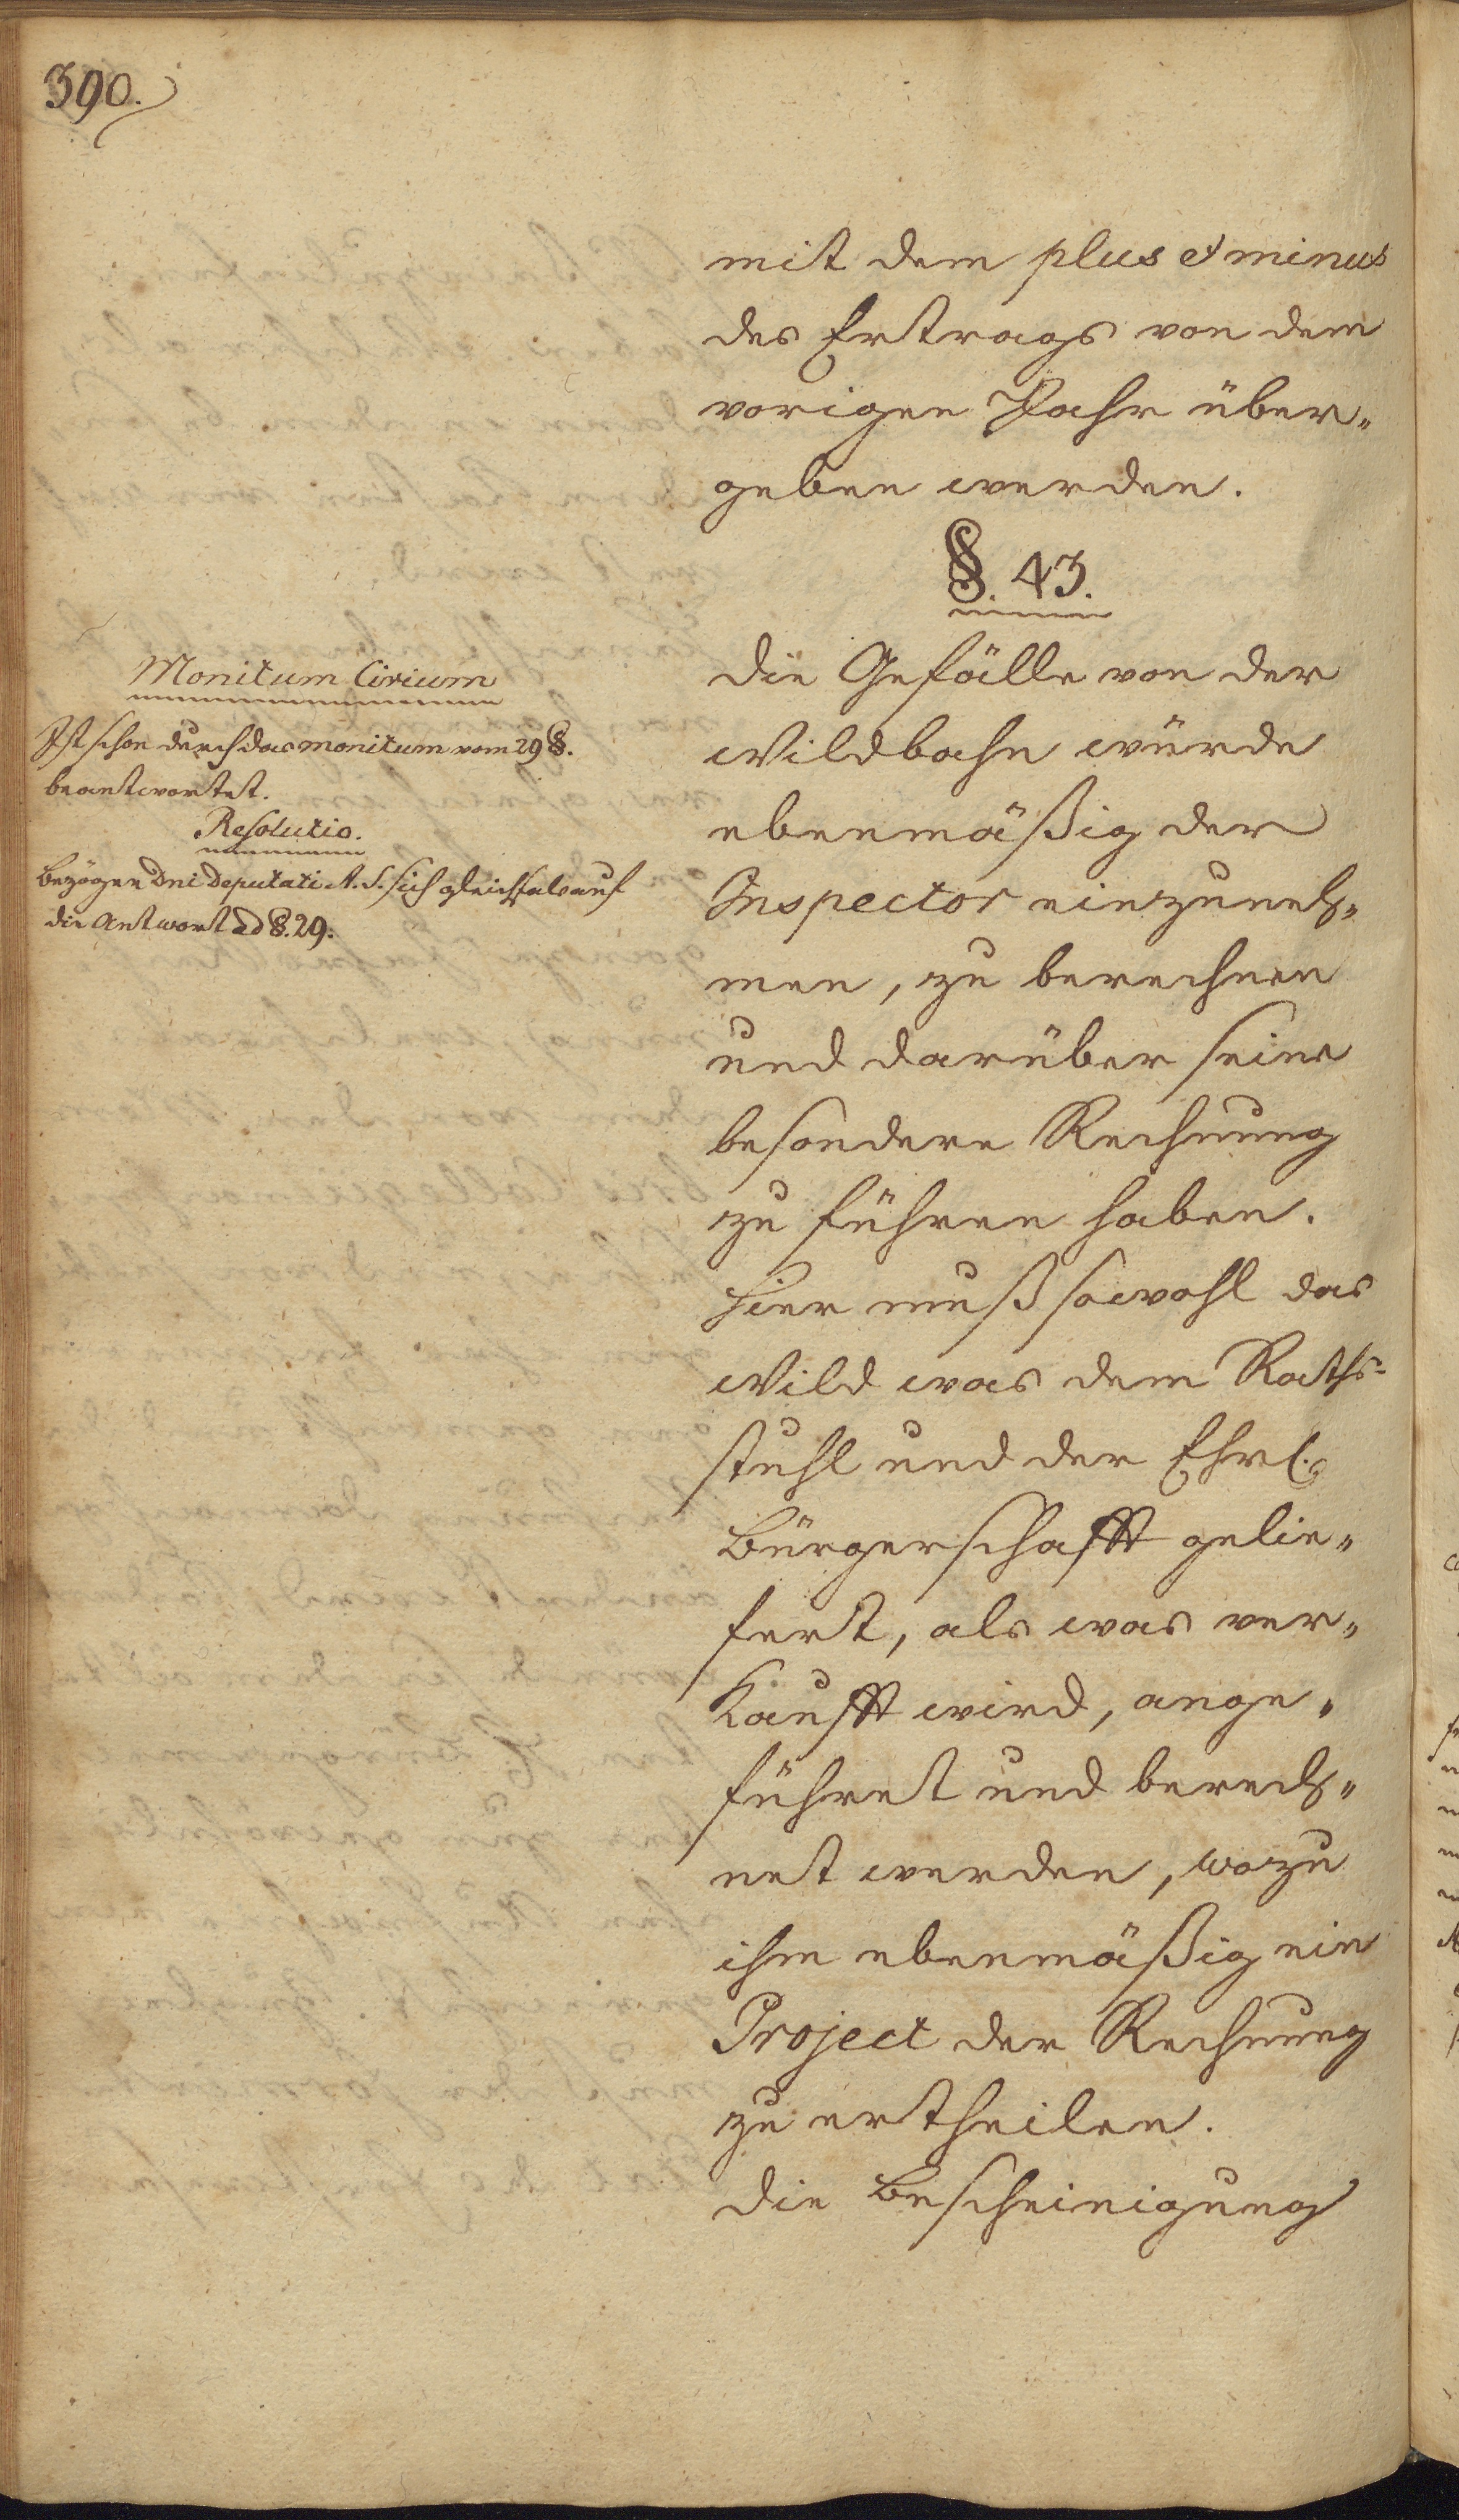 390.
mit dem plus et minus
des Ertrags von dem
vorigen Jahr über„
geben werden.
§. 43.
Die Gefälle von der
Wildbahn würde
ebenmäßig der
Inspector einzuneh„
men, zu berechnen
und darüber seine
besondere Rechnung
zu führen haben.
Hier muß sowohl das
Wild was dem Raths-
stuhl und der Ehrl.
Bürgerschafft gelie„
fert, als was ver„
Kaufft wird, ange„
führet und berech„
net werden, wozu
ihm ebenmäßig ein
Project der Rechnung
zu ertheilen.
Die Bescheinigung
Monitum Civium
Ist schon durch das monitum vom 29 §.
beantwortet.
Resolutio.
Bezögen Dni Deputati A. S. sich gleichfals auf
die Antwort ad §. 29.